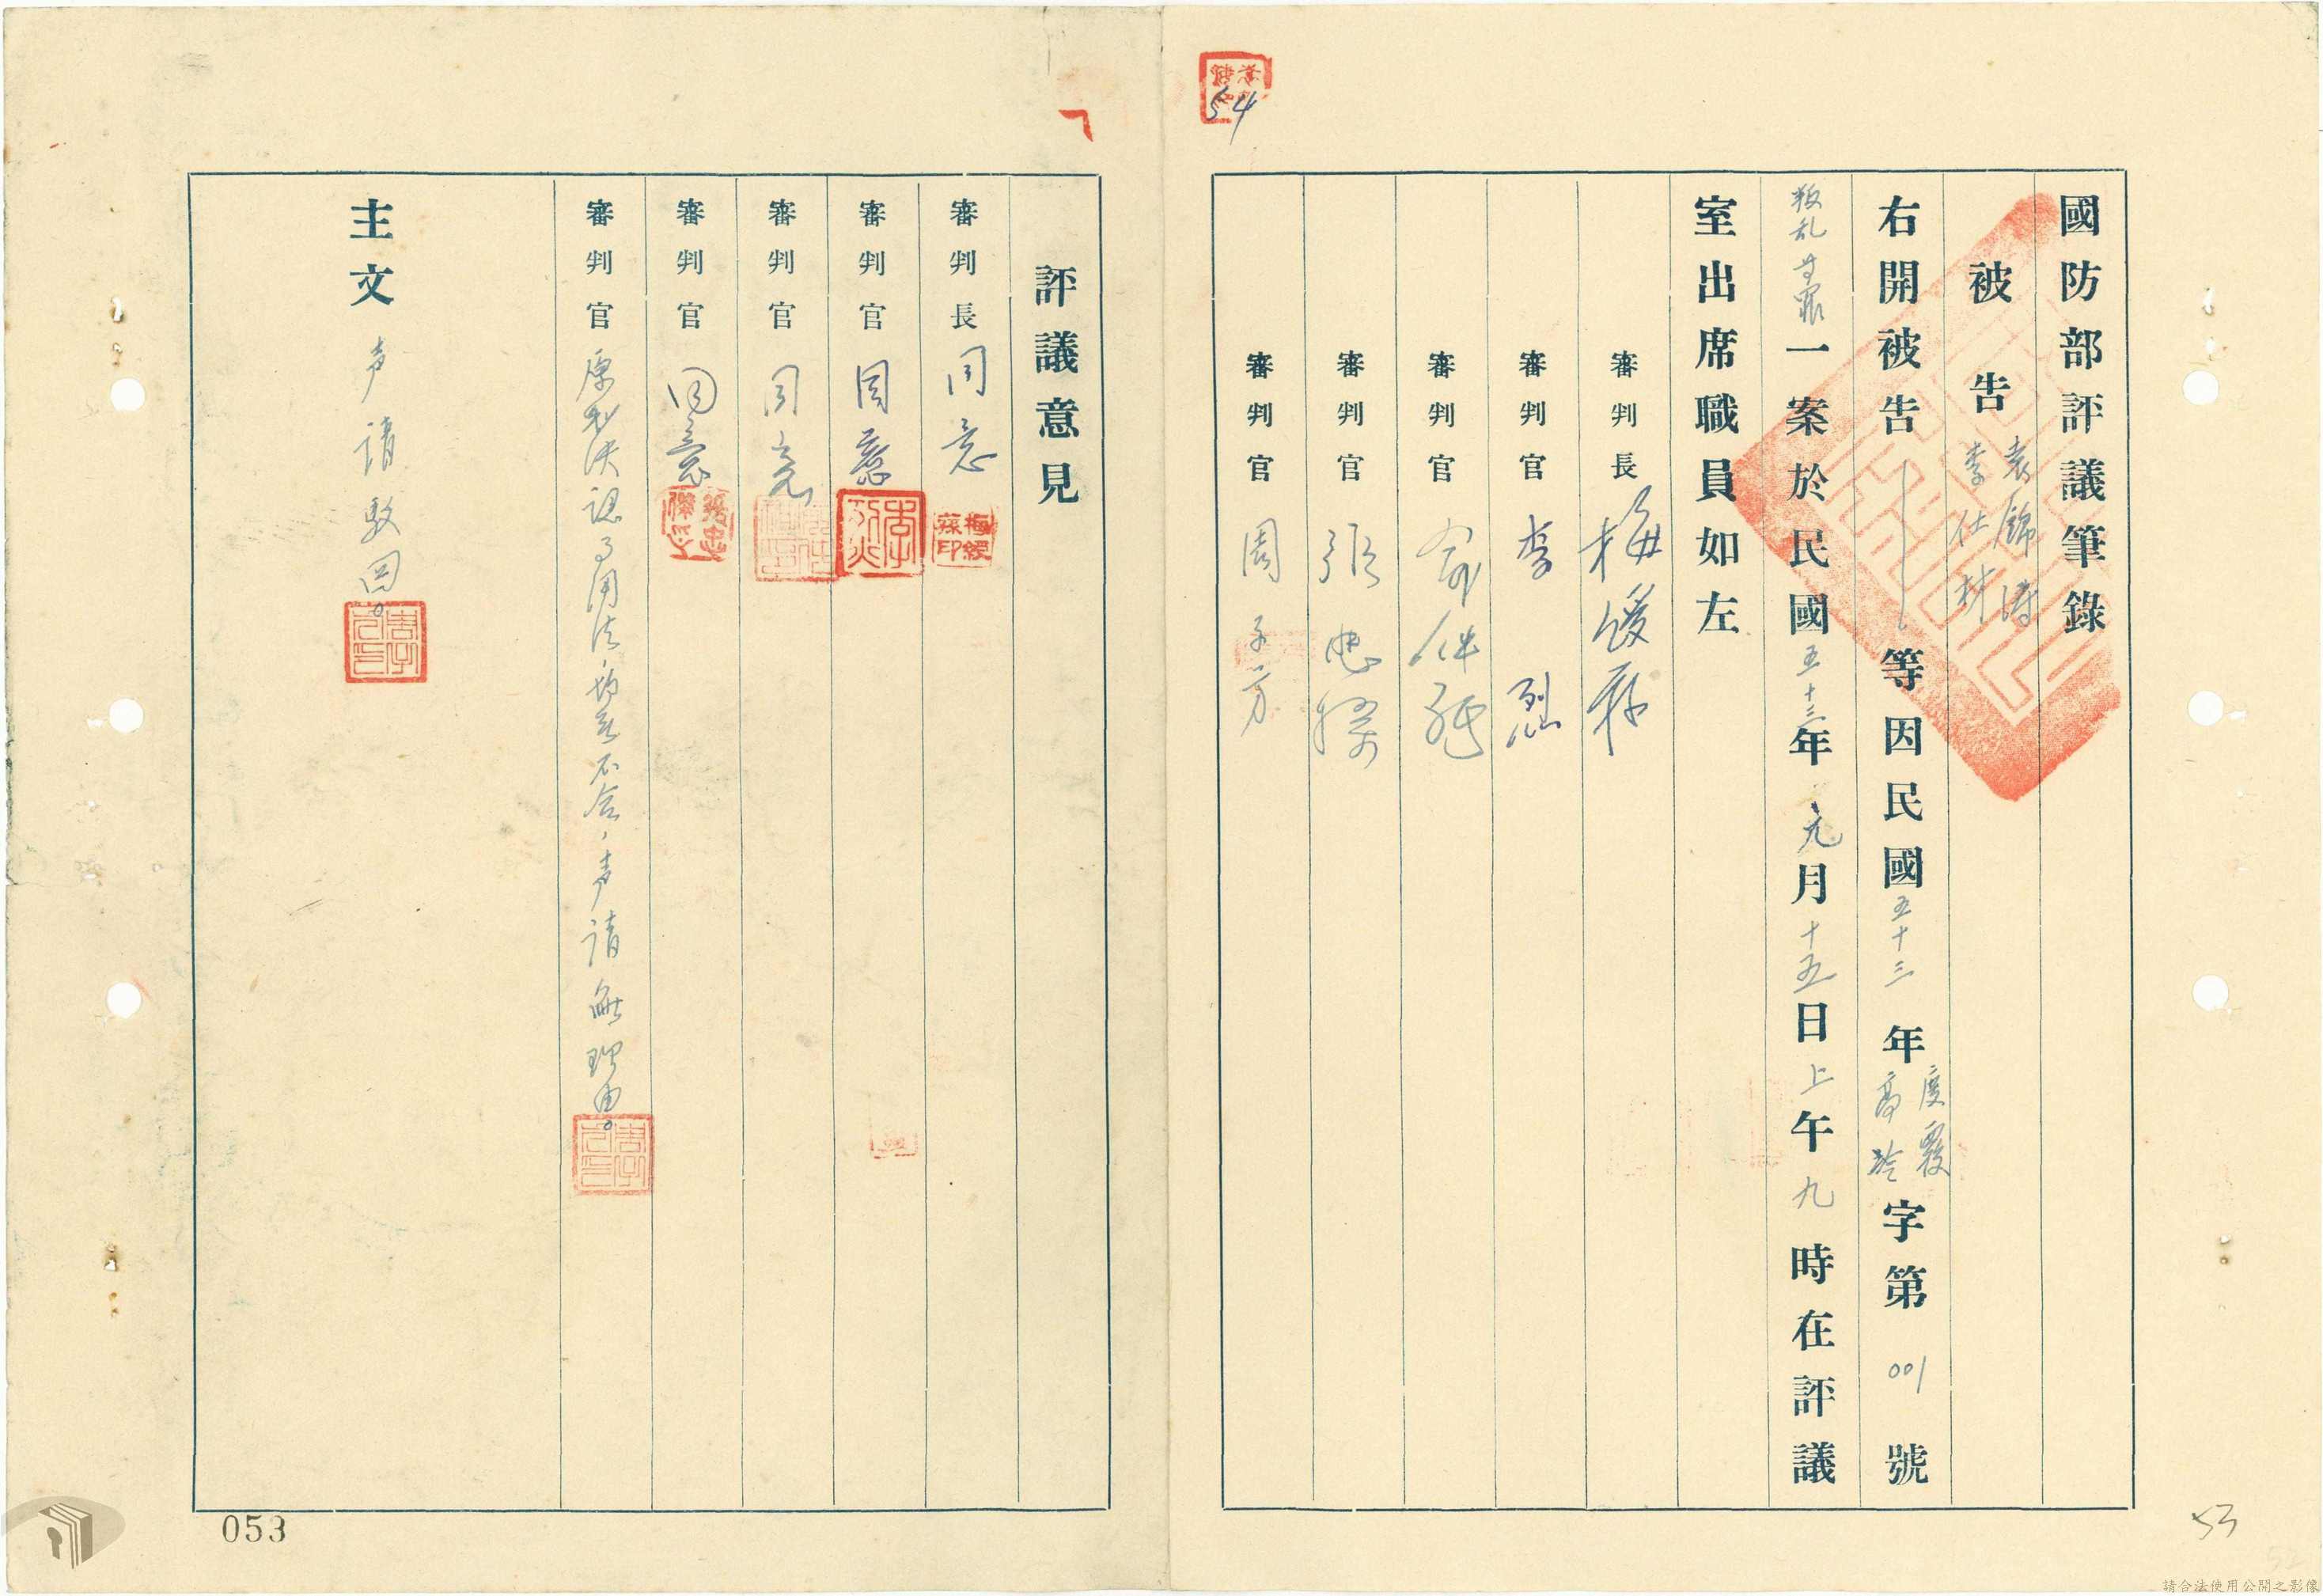 54
國防部評議筆錄
被告 袁錦濤
李仕材
右開被告等因民國五十三年度覆高字第001號
叛乱等罪一案於民國五十三年元月十五日上午九時在評議
室出席職員如左
審判長 梅綬蓀
審判官 李烈
審判官 俞
審判官 張忠
審判官 周子方
53
評議意見
審判長 同意
審判官 同意
審判官 同意
審判官 同意
審判官 原判決認事用法,均無不合,声请無理由。
主文 声请駁回。
053
請合法使用公開之影像